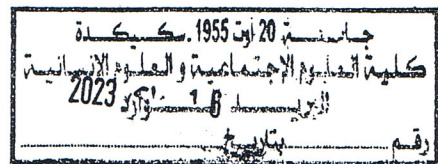 جامعة 20 أوت 1955 . سكيكدة
كلية العلوم الإجتماعية و العلوم الإنسانية
البريد 16 2023
رقم ........ بتاريخ ........